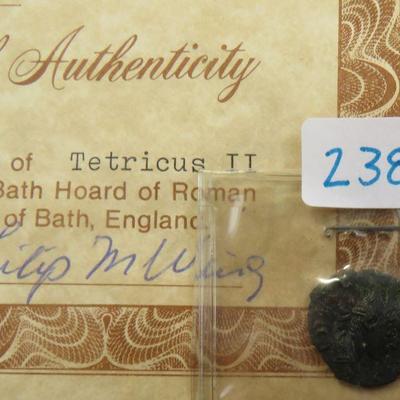 Authenticity
of Tetricus II
Bath Hoard of Roman
of Bath, England
238